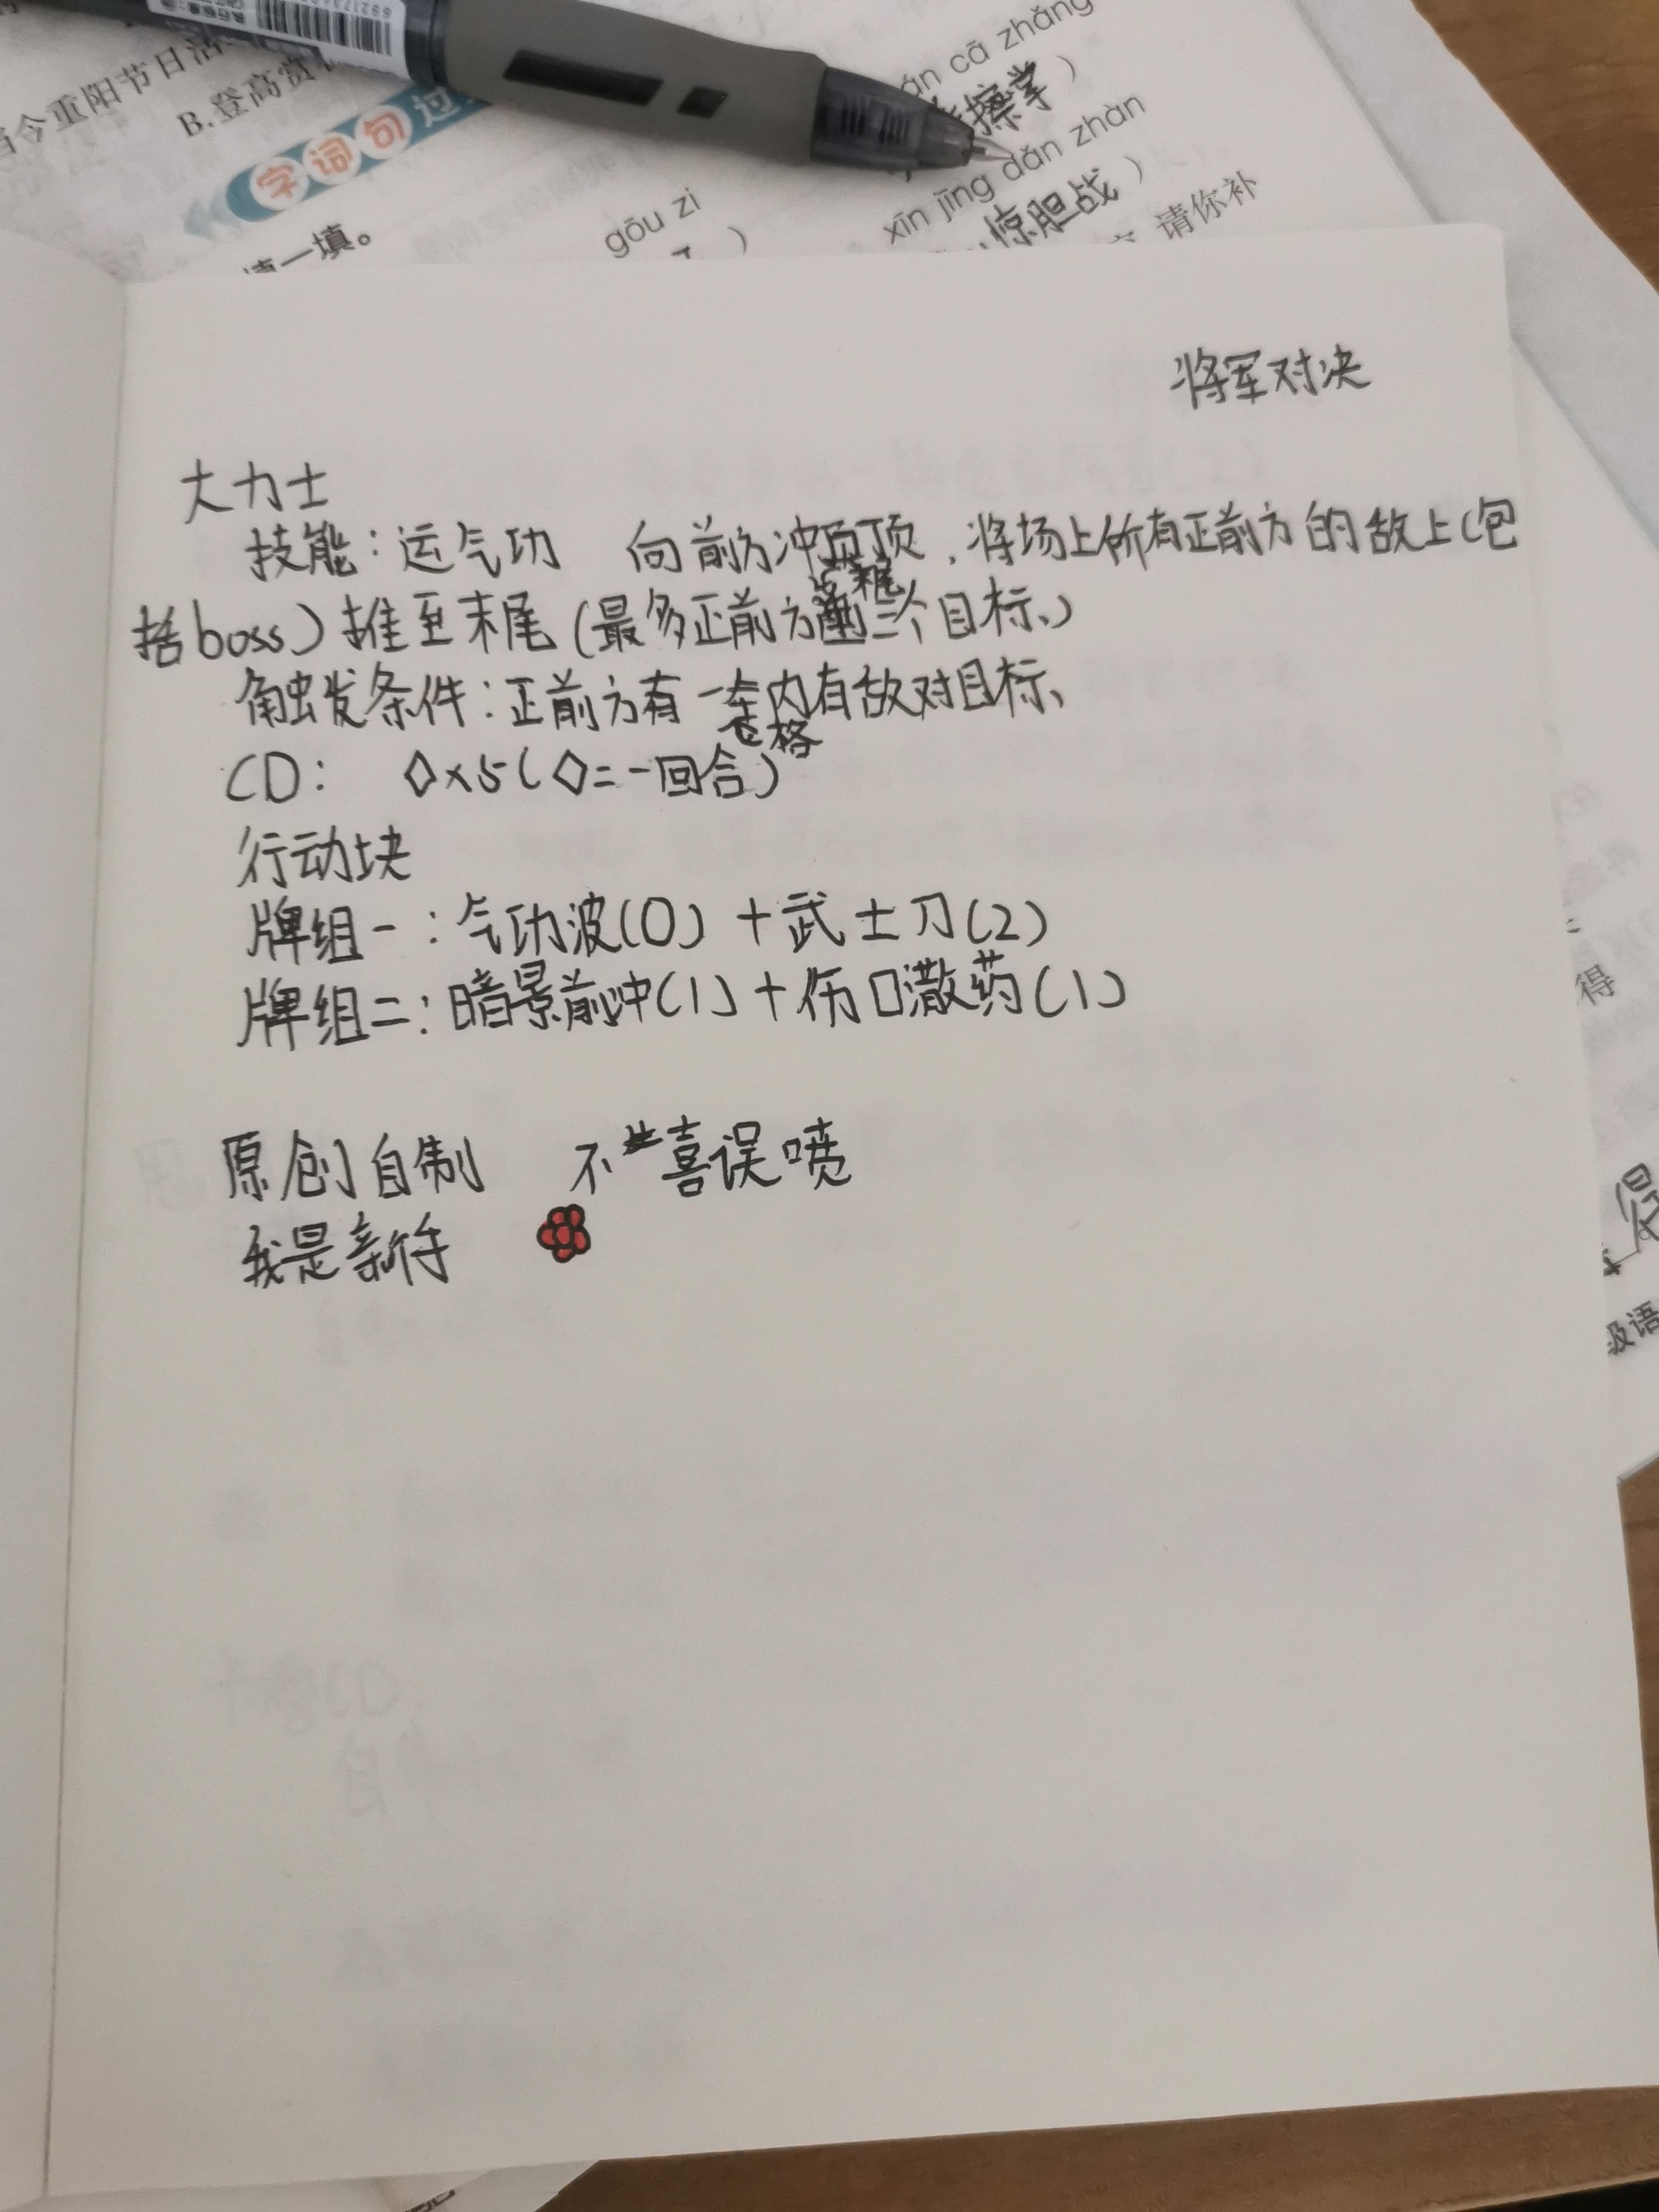 当今重阳节日活
B.登高赏
字词句过
填一填。
gōu zi
cā zhǎng
擦掌）
xīn jīng dǎn zhàn
惊胆战）
请你补
将军对决
大力士
技能：运气功 向前方冲顶，将场上所有正前方的敌上(包
括boss)推至末尾(最多正前方三个目标、)
触发条件：正前方有一格内有敌对目标、
CD： ◇×5(◇=一回合)
行动块
牌组一：气功波(0)+武士刀(2)
牌组二：暗景前冲(1)+伤口潵药(1)
原创自制 不喜误喷
我是新手
得
级语